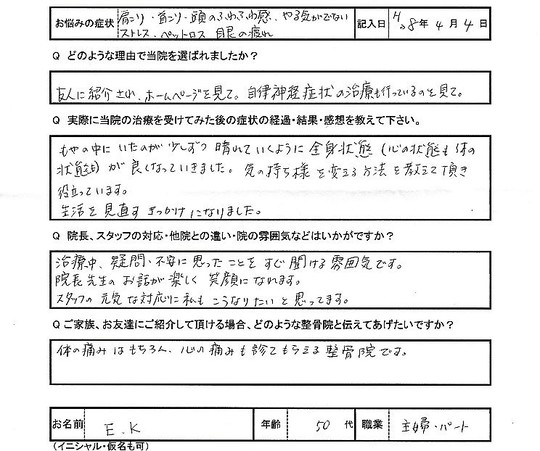 お悩みの症状 肩こり・首こり・頭のふわふわ感、やる気がでない 記入日 H28年4月4日
ストレス、ペットロス 目の疲れ
Q どのような理由で当院を選ばれましたか？
友人に紹介され、ホームページを見て。自律神経症状の治療も行っているのを見て。
Q 実際に当院の治療を受けてみた後の症状の経過・結果・感想を教えて下さい。
もやの中にいたのが少しずつ晴れていくように全身状態（心の状態も体の
状態も）が良くなっていきました。気の持ち様を変える方法を教えて頂き
役立っています。
生活を見直すきっかけになりました。
Q 院長、スタッフの対応・他院との違い・院の雰囲気などはいかがですか？
治療中、疑問・不安に思ったことをすぐ聞ける雰囲気です。
院長先生のお話が楽しく笑顔になれます。
スタッフの元気な対応に私もこうなりたいと思ってます。
Q ご家族、お友達にご紹介して頂ける場合、どのような整骨院と伝えてあげたいですか？
体の痛みはもちろん、心の痛みも診てもらえる整骨院です。
お名前 E.K 年齢 50代 職業 主婦・パート
(イニシャル・仮名も可)